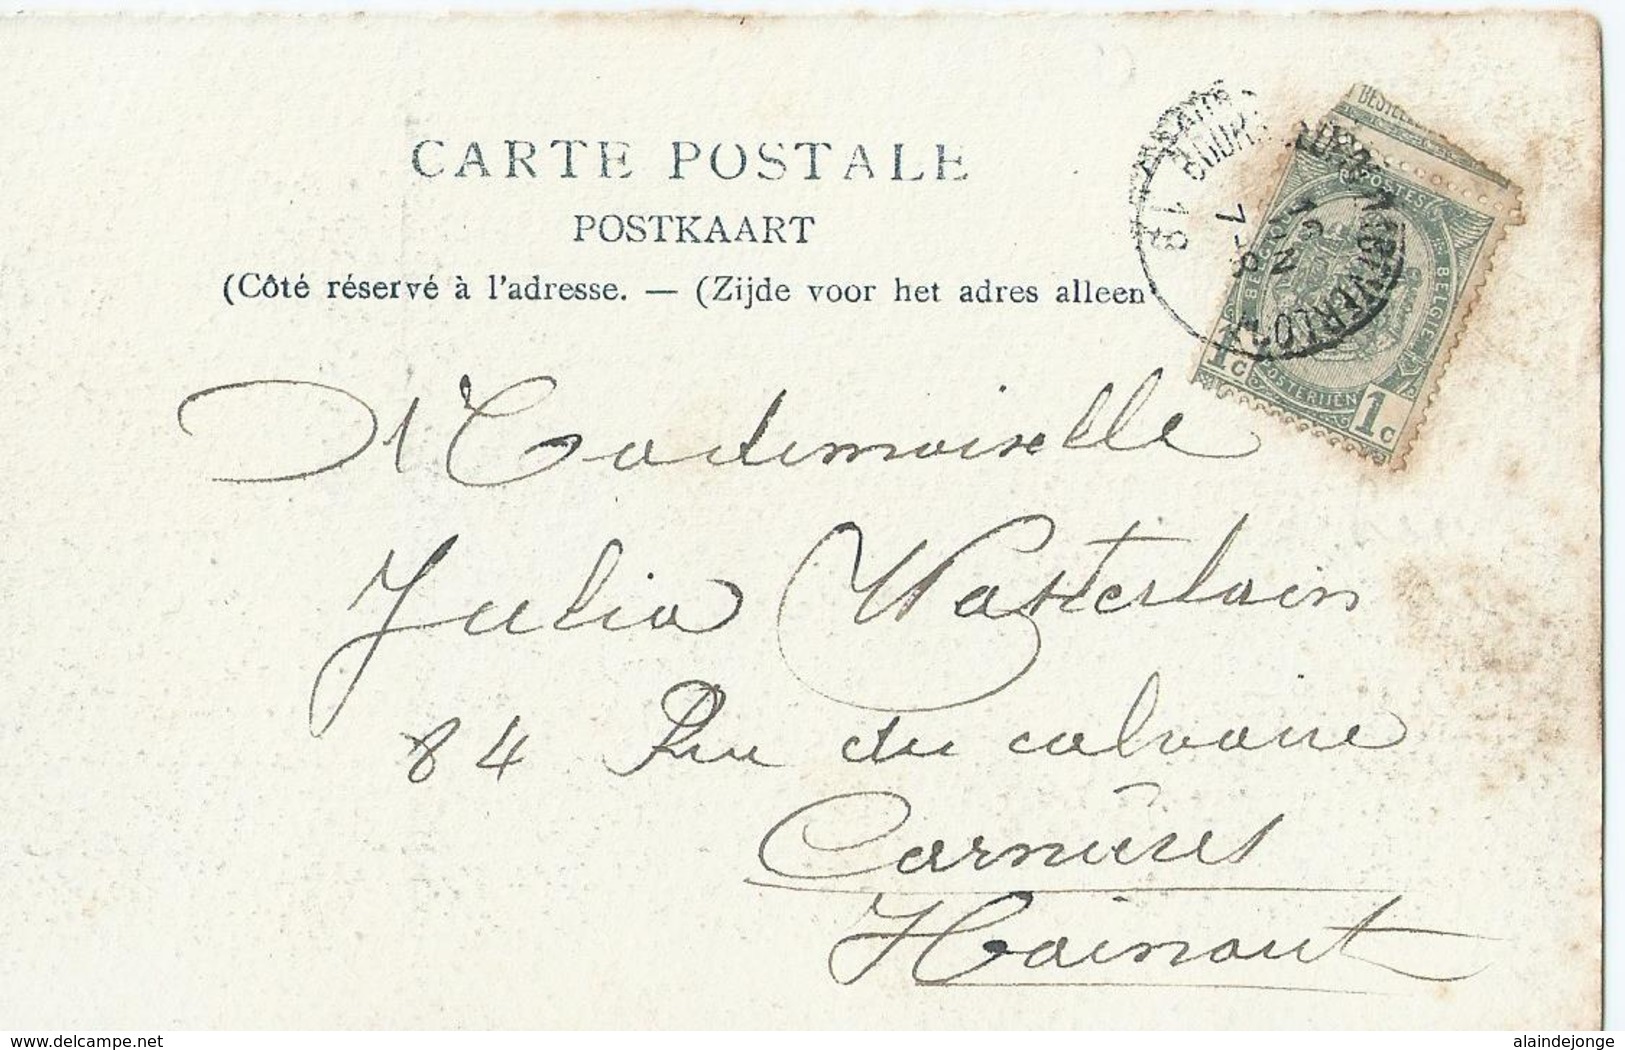 CARTE POSTALE
POSTKAART
(Côté réservé à l'adresse. — (Zijde voor het adres alleen
Mademoiselle
Julia Wasterlain
84 Rue du calvaire
Carnières
Hainaut
POSTES
BELGIQUE
BELGIË
POSTERIJEN
1c
1c
18
7-8
www.delcampe.net
alaindejonge